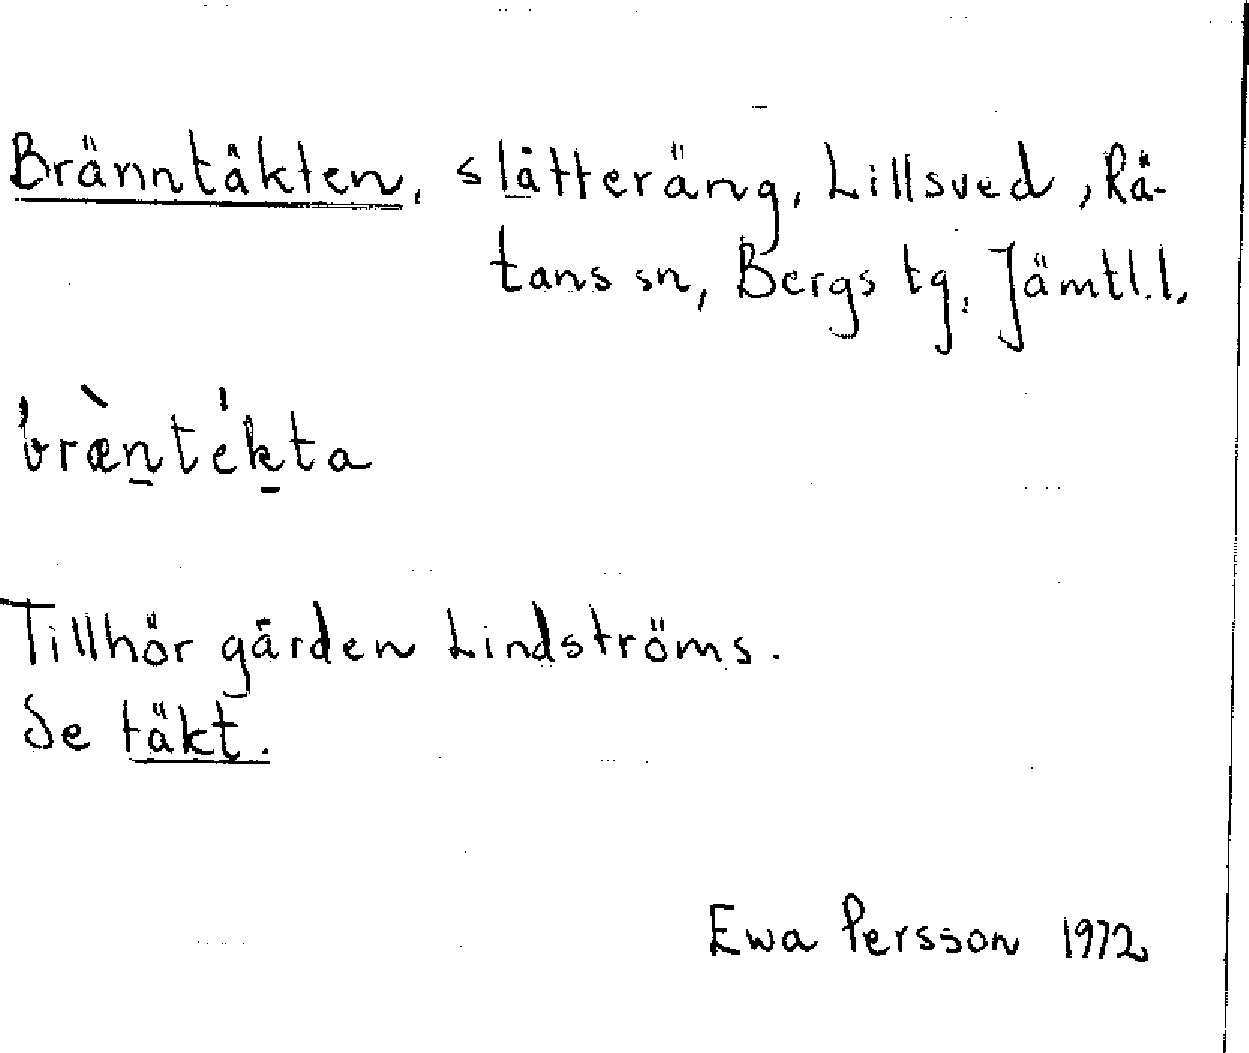 Bränntäkten, slåtteräng, Lillsved, Rä-
tans sn, Bergs tg, Jämtl.l.
bræ̀n̠ték̠ta
Tillhör gården Lindströms.
Se täkt.
Ewa Persson 1972